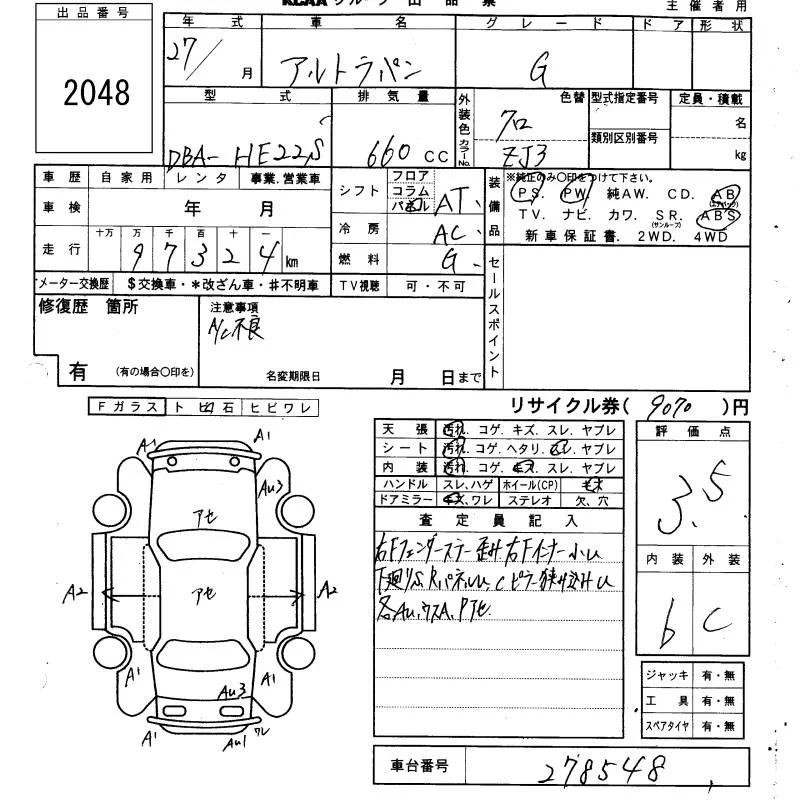 KCAA グループ 出 品 票
主催者用
出品番号
2048
年式 車名 グレード ドア 形状
27/ 月 アルトラパン G
型式 排気量 外装色 カラーNo. 色替 型式指定番号 定員・積載
DBA- HE22S 660 CC クロ ZJ3 類別区別番号 名 kg
車歴 自家用 レンタ 事業.営業車
車検 年 月
走行 十万 万 千 百 十 一
9 7 3 2 4 km
メーター交換歴 $交換車・*改ざん車・#不明車
シフト フロア コラム パネル AT
冷房 AC
燃料 G
TV視聴 可・不可
装備品
※純正のみ〇印をつけて下さい。
PS. PW. 純AW. CD. AB (エアバック)
TV. ナビ. カワ. SR. (サンルーフ) ABS
新車保証書. 2WD. 4WD
セールスポイント
修復歴 箇所
有 (有の場合〇印を)
注意事項
A/C不良
名変期限日 月 日まで
リサイクル券( 9070 )円
Fガラス トビ石 ヒビワレ
天張 汚れ. コゲ. キズ. スレ. ヤブレ
シート 汚れ. コゲ. ヘタリ. スレ. ヤブレ
内装 汚れ. コゲ. キズ. スレ. ヤブレ
ハンドル スレ、ハゲ ホイール(CP)
ドアミラー キズ、ワレ ステレオ 欠、穴
査定員記入
右Fフェンダーステー歪み.右Fインナー小U
下廻りS.R.パネルU.Cピラー狭み込みU
各Au.ウスA.Pアセ
評価点
3.5
内装 外装
b C
ジャッキ 有・無
工具 有・無
スペアタイヤ 有・無
車台番号 278548
A1 A1
Au3
アセ
A2 アセ A2
A1 A1
Au3
A1 Au1 ワレ